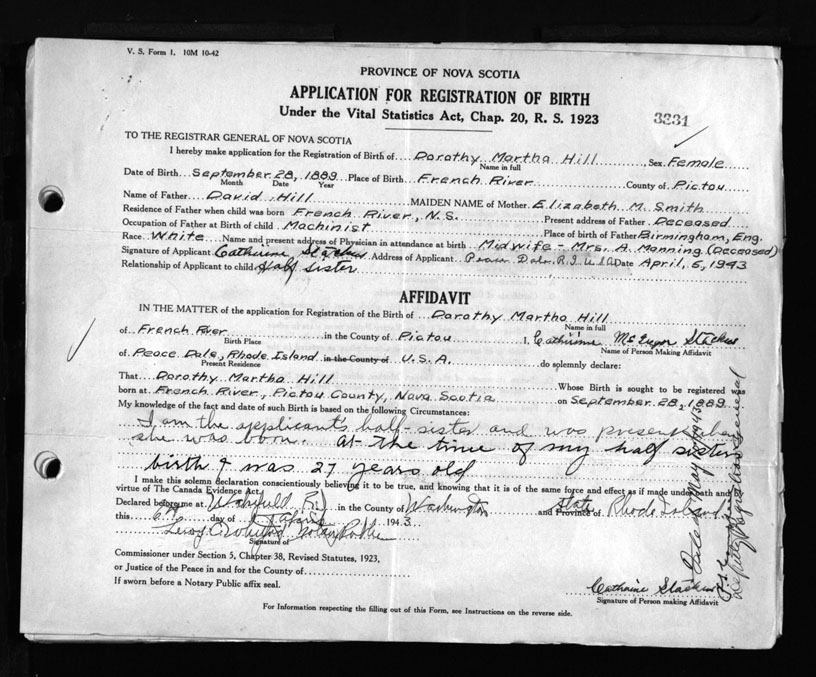 V. S. Form 1. 10M 10-42
PROVINCE OF NOVA SCOTIA
APPLICATION FOR REGISTRATION OF BIRTH
Under the Vital Statistics Act, Chap. 20, R. S. 1923
3231
TO THE REGISTRAR GENERAL OF NOVA SCOTIA
I hereby make application for the Registration of Birth of Dorothy Martha Hill, Sex Female
Name in full
Date of Birth September 28, 1889 Place of Birth French River County of Pictou
Month Date Year
Name of Father David Hill MAIDEN NAME of Mother Elizabeth M. Smith
Residence of Father when child was born French River, N.S. Present address of Father Deceased
Occupation of Father at Birth of child Machinist Place of birth of Father Birmingham, Eng.
Race White Name and present address of Physician in attendance at birth Midwife - Mrs. A. Manning (Deceased)
Signature of Applicant Catherine Address of Applicant Peace Dale, R.I. U.S.A. Date April, 5, 1943
Relationship of Applicant to child Half sister
AFFIDAVIT
IN THE MATTER of the application for Registration of the Birth of Dorothy Martha Hill
Name in full
of French River in the County of Pictou I, Catherine
Birth Place Name of Person Making Affidavit
of Peace Dale, Rhode Island in the County of U.S.A. do solemnly declare:
Present Residence
That Dorothy Martha Hill Whose Birth is sought to be registered was
born at French River, Pictou County, Nova Scotia on September 28, 1889
My knowledge of the fact and date of such Birth is based on the following Circumstances:
I am the applicant's half-sister and was present when
she was born. At the time of my half sister
birth I was 27 years old
I make this solemn declaration conscientiously believing it to be true, and knowing that it is of the same force and effect as if made under oath and
virtue of The Canada Evidence Act.
Declared before me at Wakefield R.I. in the County of Washington State and Province of Rhode Island
this 6th day of 1943.
Notary Public
Signature of
Commissioner under Section 5, Chapter 38, Revised Statutes, 1923,
or Justice of the Peace in and for the County of
If sworn before a Notary Public affix seal.
Catherine
Signature of Person making Affidavit
For Information respecting the filling out of this Form, see Instructions on the reverse side.
Deputy Registrar General